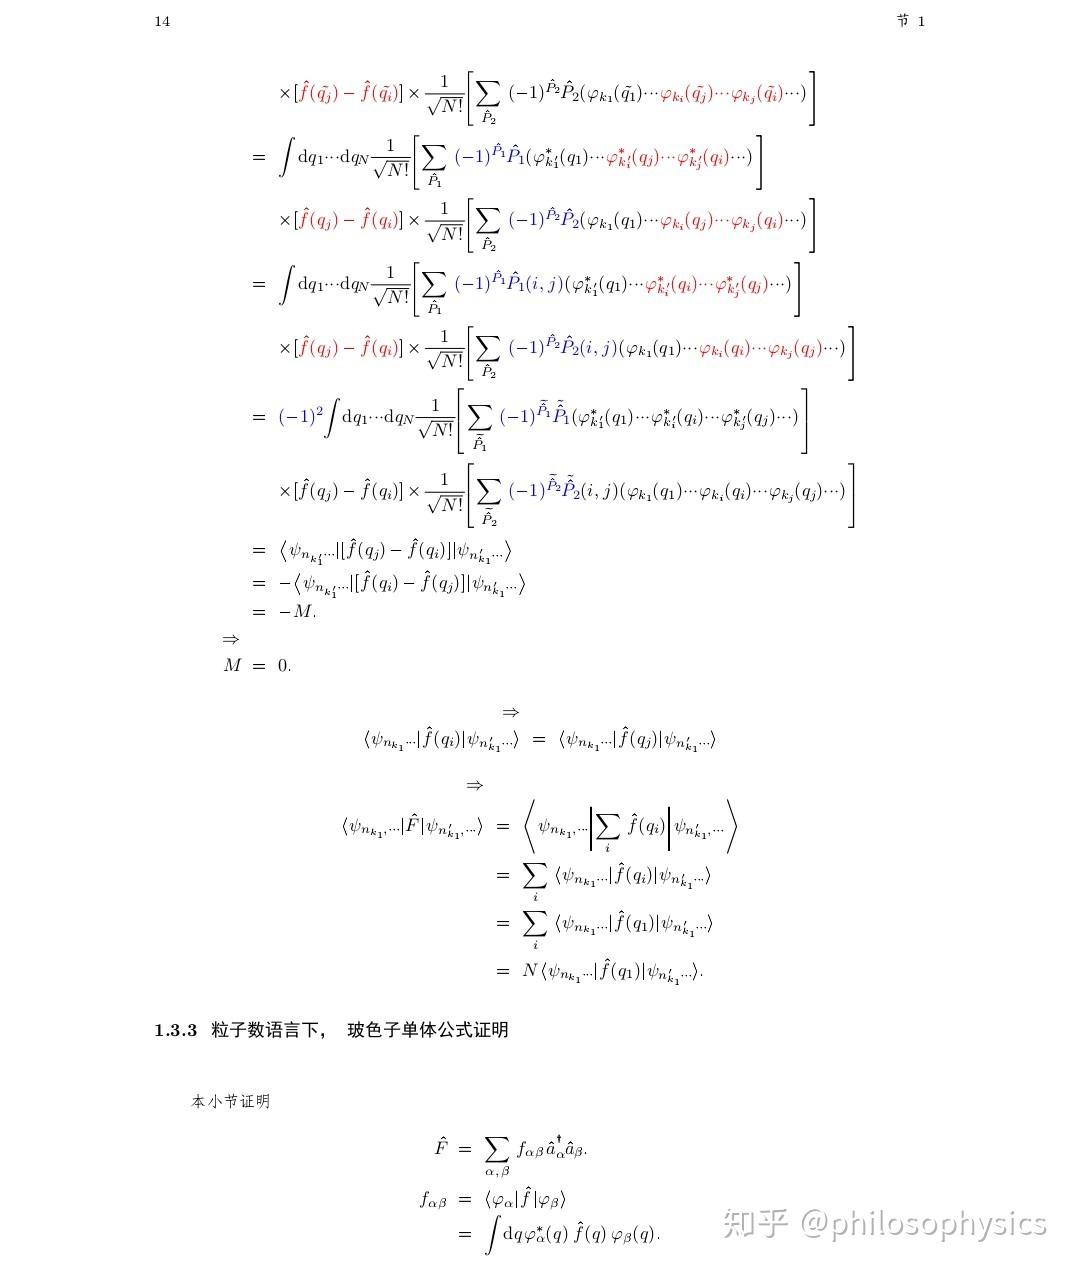 14 节 1
×[f̂(q̃_j) − f̂(q̃_i)] × 1/√N! [∑_{P̂_2} (−1)^{P̂_2} P̂_2(φ_{k_1}(q̃_1)···φ_{k_i}(q̃_j)···φ_{k_j}(q̃_i)···)]
= ∫dq_1···dq_N 1/√N! [∑_{P̂_1} (−1)^{P̂_1} P̂_1(φ*_{k_1′}(q_1)···φ*_{k_i′}(q_j)···φ*_{k_j′}(q_i)···)]
×[f̂(q_j) − f̂(q_i)] × 1/√N! [∑_{P̂_2} (−1)^{P̂_2} P̂_2(φ_{k_1}(q_1)···φ_{k_i}(q_j)···φ_{k_j}(q_i)···)]
= ∫dq_1···dq_N 1/√N! [∑_{P̂_1} (−1)^{P̂_1} P̂_1(i, j)(φ*_{k_1′}(q_1)···φ*_{k_i′}(q_i)···φ*_{k_j′}(q_j)···)]
×[f̂(q_j) − f̂(q_i)] × 1/√N! [∑_{P̂_2} (−1)^{P̂_2} P̂_2(i, j)(φ_{k_1}(q_1)···φ_{k_i}(q_i)···φ_{k_j}(q_j)···)]
= (−1)^2 ∫dq_1···dq_N 1/√N! [∑_{P̂̃_1} (−1)^{P̂̃_1} P̂̃_1(φ*_{k_1′}(q_1)···φ*_{k_i′}(q_i)···φ*_{k_j′}(q_j)···)]
×[f̂(q_j) − f̂(q_i)] × 1/√N! [∑_{P̂̃_2} (−1)^{P̂̃_2} P̂̃_2(i, j)(φ_{k_1}(q_1)···φ_{k_i}(q_i)···φ_{k_j}(q_j)···)]
= ⟨ψ_{n_{k_1′}···}|[f̂(q_j) − f̂(q_i)]|ψ_{n′_{k_1}···}⟩
= −⟨ψ_{n_{k_1′}···}|[f̂(q_i) − f̂(q_j)]|ψ_{n′_{k_1}···}⟩
= −M.
⇒
M = 0.
⇒
⟨ψ_{n_{k_1}···}|f̂(q_i)|ψ_{n′_{k_1}···}⟩ = ⟨ψ_{n_{k_1}···}|f̂(q_j)|ψ_{n′_{k_1}···}⟩
⇒
⟨ψ_{n_{k_1},···}|F̂|ψ_{n′_{k_1},···}⟩ = ⟨ψ_{n_{k_1},···}|∑_i f̂(q_i)|ψ_{n′_{k_1},···}⟩
= ∑_i ⟨ψ_{n_{k_1}···}|f̂(q_i)|ψ_{n′_{k_1}···}⟩
= ∑_i ⟨ψ_{n_{k_1}···}|f̂(q_1)|ψ_{n′_{k_1}···}⟩
= N⟨ψ_{n_{k_1}···}|f̂(q_1)|ψ_{n′_{k_1}···}⟩.
1.3.3 粒子数语言下， 玻色子单体公式证明
本小节证明
F̂ = ∑_{α,β} f_{αβ} â†_α â_β.
f_{αβ} = ⟨φ_α|f̂|φ_β⟩
= ∫dq φ*_α(q) f̂(q) φ_β(q).
知乎 @philosophysics